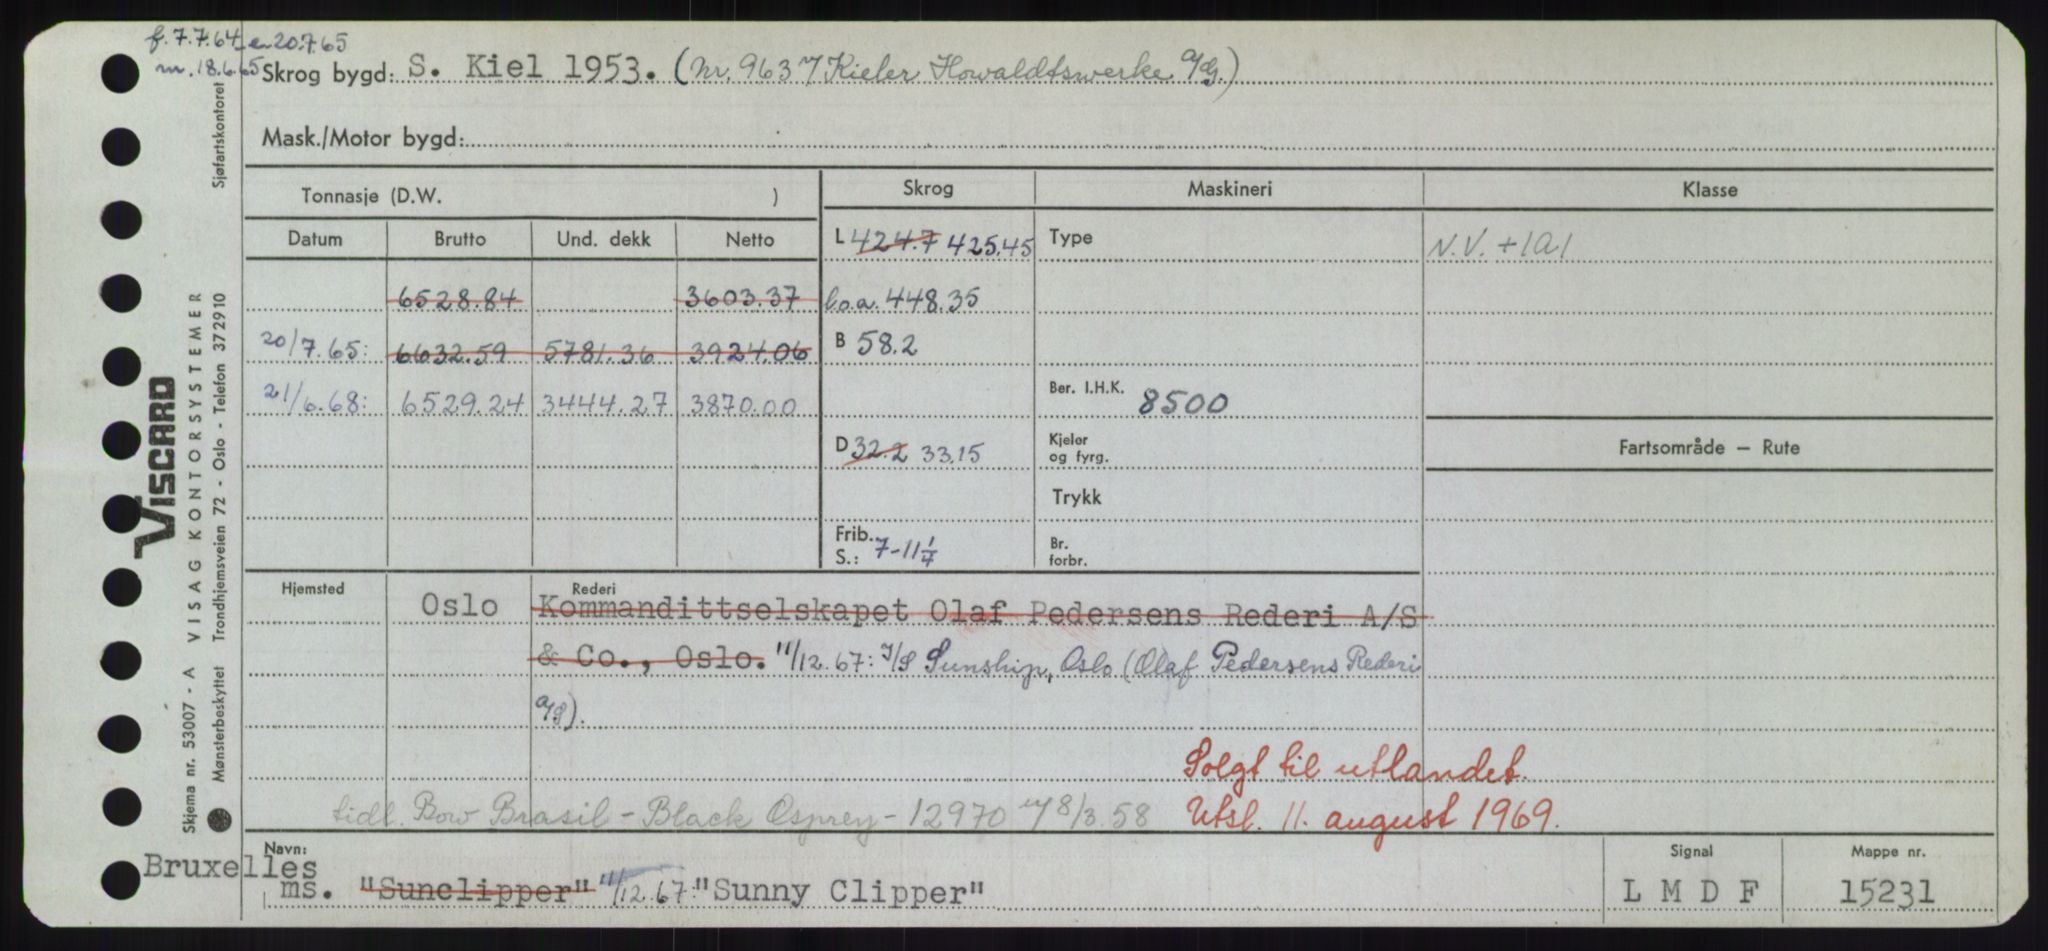 f. 7.7.64 en 20.7.65
m. 18.6.65
Skrog bygd: S. Kiel 1953. (Nr. 963 Kieler Howaldtswerke A/G.)
Mask./Motor bygd:
Tonnasje (D.W. )
Skrog
Maskineri
Klasse
Datum Brutto Und. dekk Netto
L 424.7 425.45
Type
N.V. +1A1
6528.84 3603.37
l.o.a. 448.35
20/7.65: 6632.59 5781.36 3924.06
B 58.2
21/6.68: 6529.24 3444.27 3870.00
Ber. I.H.K. 8500
D 32.2 33.15
Kjeler
og fyrg.
Fartsområde — Rute
Trykk
Frib.
S.: 7-11 1/4
Br.
forbr.
Hjemsted Oslo
Rederi
Kommandittselskapet Olaf Pedersens Rederi A/S
& Co., Oslo. 11/12.67: I/S Sunship, Oslo (Olaf Pedersens Rederi
A/S).
Solgt til utlandet.
tidl. Bow Brasil - Black Osprey - 12970 8/3.58
Utsl. 11. august 1969.
Navn:
Bruxelles
ms. "Sunclipper" 11/12.67: "Sunny Clipper"
Signal
L M D F
Mappe nr.
15231
VISCARD
Skjema nr. 53007 - A VISAG KONTORSYSTEMER
Mønsterbeskyttet Trondhjemsveien 72 - Oslo - Telefon 372910 Sjøfartskontoret